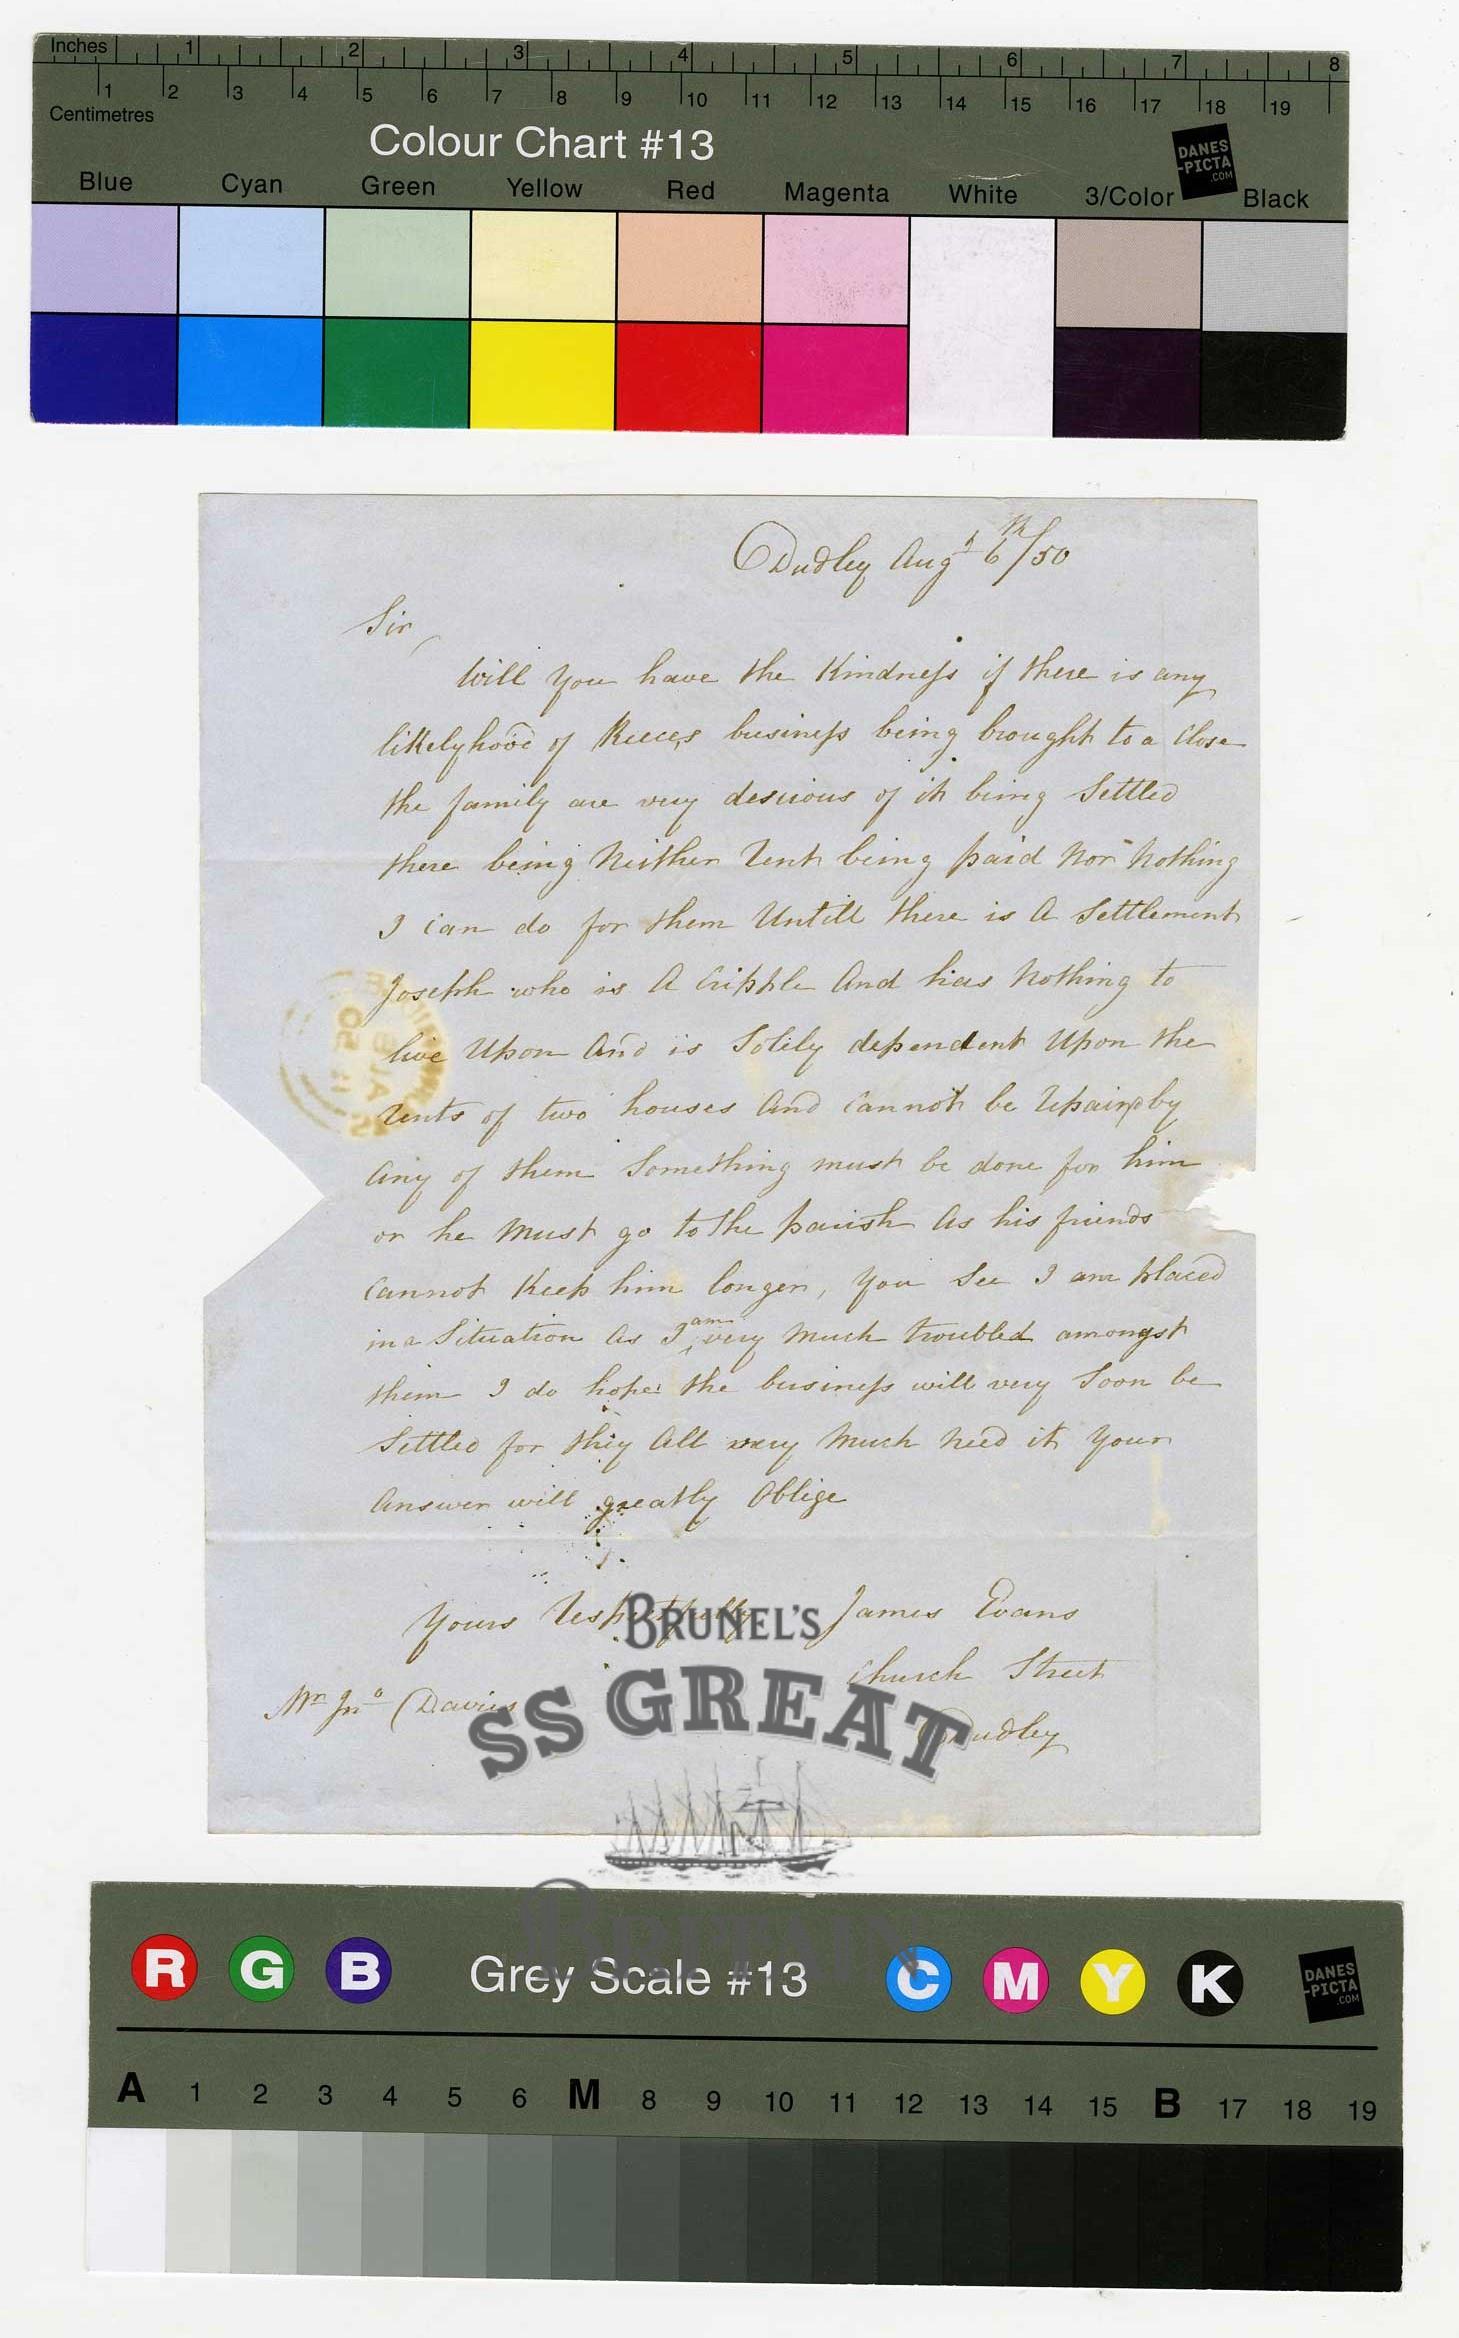 Inches 1 2 3 4 5 6 7 8
1 2 3 4 5 6 7 8 9 10 11 12 13 14 15 16 17 18 19
Centimetres
Colour Chart #13
DANES
-PICTA
.COM
Blue Cyan Green Yellow Red Magenta White 3/Color Black
Dudley Augt 6th/50
Sir,
Will You have the Kindness if there is any
likelyhood of Reeces business being brought to a Close
the family are very desirous of it being Settled
there being Neither Rent being paid Nor Nothing
I Can do for them Untill there is A Settlement
Joseph who is A Cripple And has Nothing to
live Upon And is Solely dependent Upon the
Rents of two houses And Cannot be Repaird by
Any of them Something must be done for him
or he Must go to the parish As his friends
Cannot Keep him longer, You See I am placed
in a Situation As I am very Much troubled amongst
them I do hope the business will very Soon be
Settled for they All very Much Need it Your
Answer will greatly Oblige
Yours Respectfully James Evans
Church Street
Mr Jno Davies
Dudley
BRUNEL'S
SS GREAT
BRITAIN
R G B Grey Scale #13 C M Y K
DANES
-PICTA
.COM
A 1 2 3 4 5 6 M 8 9 10 11 12 13 14 15 B 17 18 19